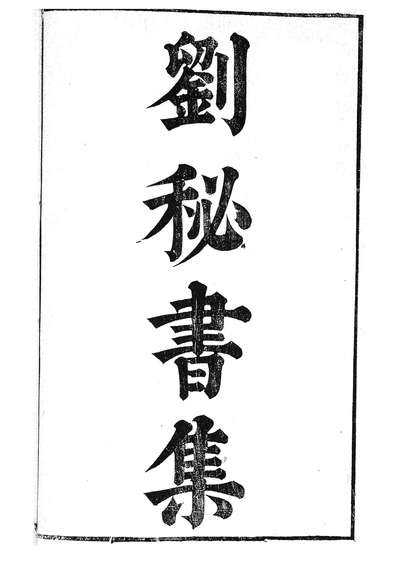 劉秘書集